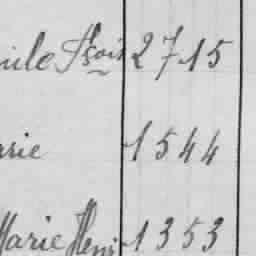 mile Fçois 2715
arie 1544
Marie Henri 1353